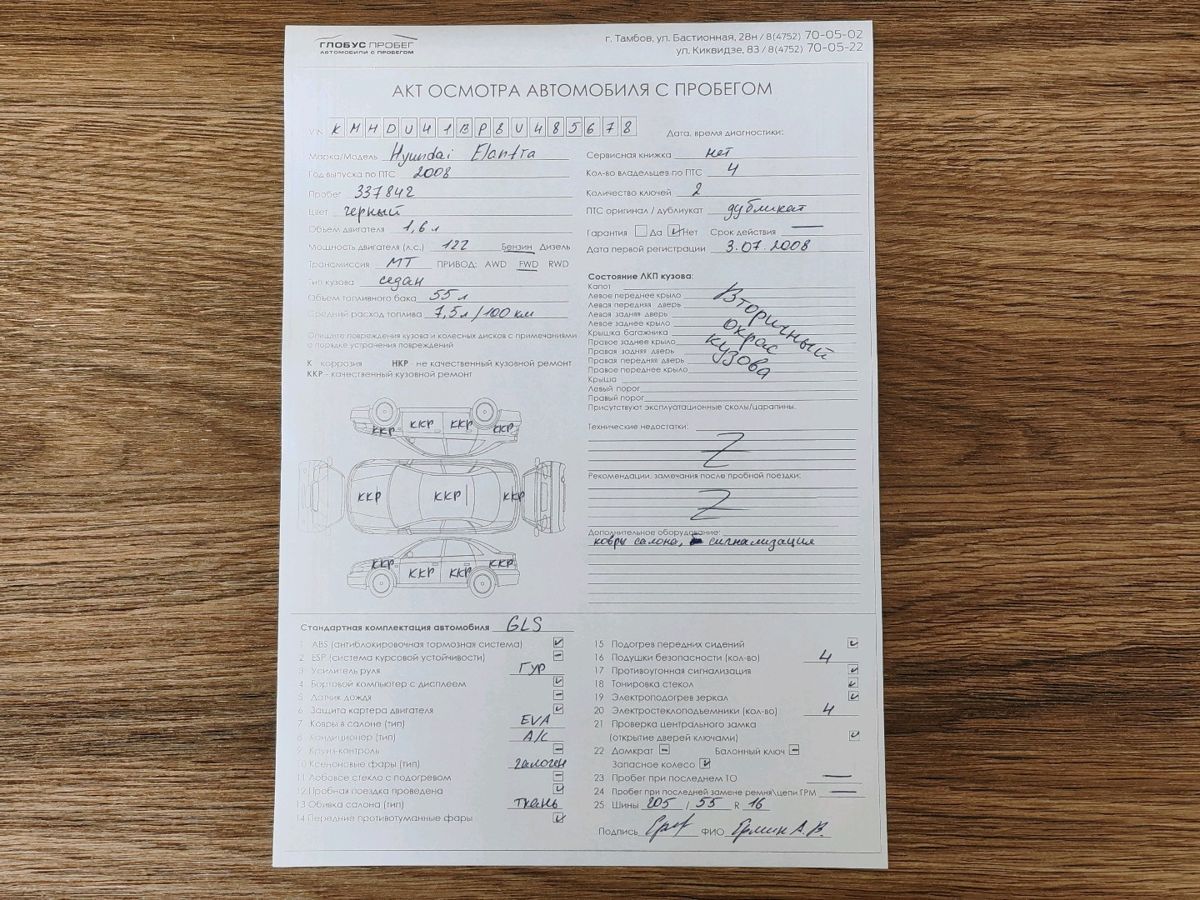 ГЛОБУС ПРОБЕГ
АВТОМОБИЛИ С ПРОБЕГОМ
г. Тамбов, ул. Бастионная, 28н / 8(4752) 70-05-02
ул. Киквидзе, 83 / 8(4752) 70-05-22
АКТ ОСМОТРА АВТОМОБИЛЯ С ПРОБЕГОМ
VIN K M H D U 4 1 B P 8 U 4 8 5 6 7 8
Марка/Модель Hyundai Elantra
Год выпуска по ПТС 2008
Пробег 337842
Цвет черный
Объем двигателя 1,6 л
Мощность двигателя (л.с.) 122 Бензин Дизель
Трансмиссия МТ ПРИВОД: AWD FWD RWD
Тип кузова седан
Объем топливного бака 55 л
Средний расход топлива 7,5 л/100 км
Опишите повреждения кузова и колесных дисков с примечаниями
о порядке устранения повреждений
К - коррозия НКР - не качественный кузовной ремонт
ККР - качественный кузовной ремонт
ККР ККР ККР ККР
ККР ККР ККР
ККР ККР ККР ККР
Дата, время диагностики:
Сервисная книжка нет
Кол-во владельцев по ПТС 4
Количество ключей 2
ПТС оригинал / дубликат дубликат
Гарантия Да Нет Срок действия —
Дата первой регистрации 3.07.2008
Состояние ЛКП кузова:
Капот
Левое переднее крыло
Левая передняя дверь
Левая задняя дверь
Левое заднее крыло
Крышка багажника
Правое заднее крыло
Правая задняя дверь
Правая передняя дверь
Правое переднее крыло
Крыша
Левый порог
Правый порог
Вторичный
окрас
кузова
Присутствуют эксплуатационные сколы/царапины.
Технические недостатки:
Z
Рекомендации, замечания после пробной поездки:
Z
Дополнительное оборудование:
ковры салона, сигнализация
Стандартная комплектация автомобиля GLS
1 ABS (антиблокировочная тормозная система)
2 ESP (система курсовой устойчивости)
3 Усилитель руля ГУР
4 Бортовой компьютер с дисплеем
5 Датчик дождя
6 Защита картера двигателя
7 Ковры в салоне (тип) EVA
8 Кондиционер (тип) A/C
9 Круиз-контроль
10 Ксеноновые фары (тип) галоген
11 Лобовое стекло с подогревом
12 Пробная поездка проведена
13 Обивка салона (тип) ткань
14 Передние противотуманные фары
15 Подогрев передних сидений
16 Подушки безопасности (кол-во) 4
17 Противоугонная сигнализация
18 Тонировка стекол
19 Электроподогрев зеркал
20 Электростеклоподъемники (кол-во) 4
21 Проверка центрального замка
(открытие дверей ключами)
22 Домкрат Балонный ключ
Запасное колесо
23 Пробег при последнем ТО —
24 Пробег при последней замене ремня\цепи ГРМ —
25 Шины 205 / 55 R 16
Подпись ФИО Ермин А.В.